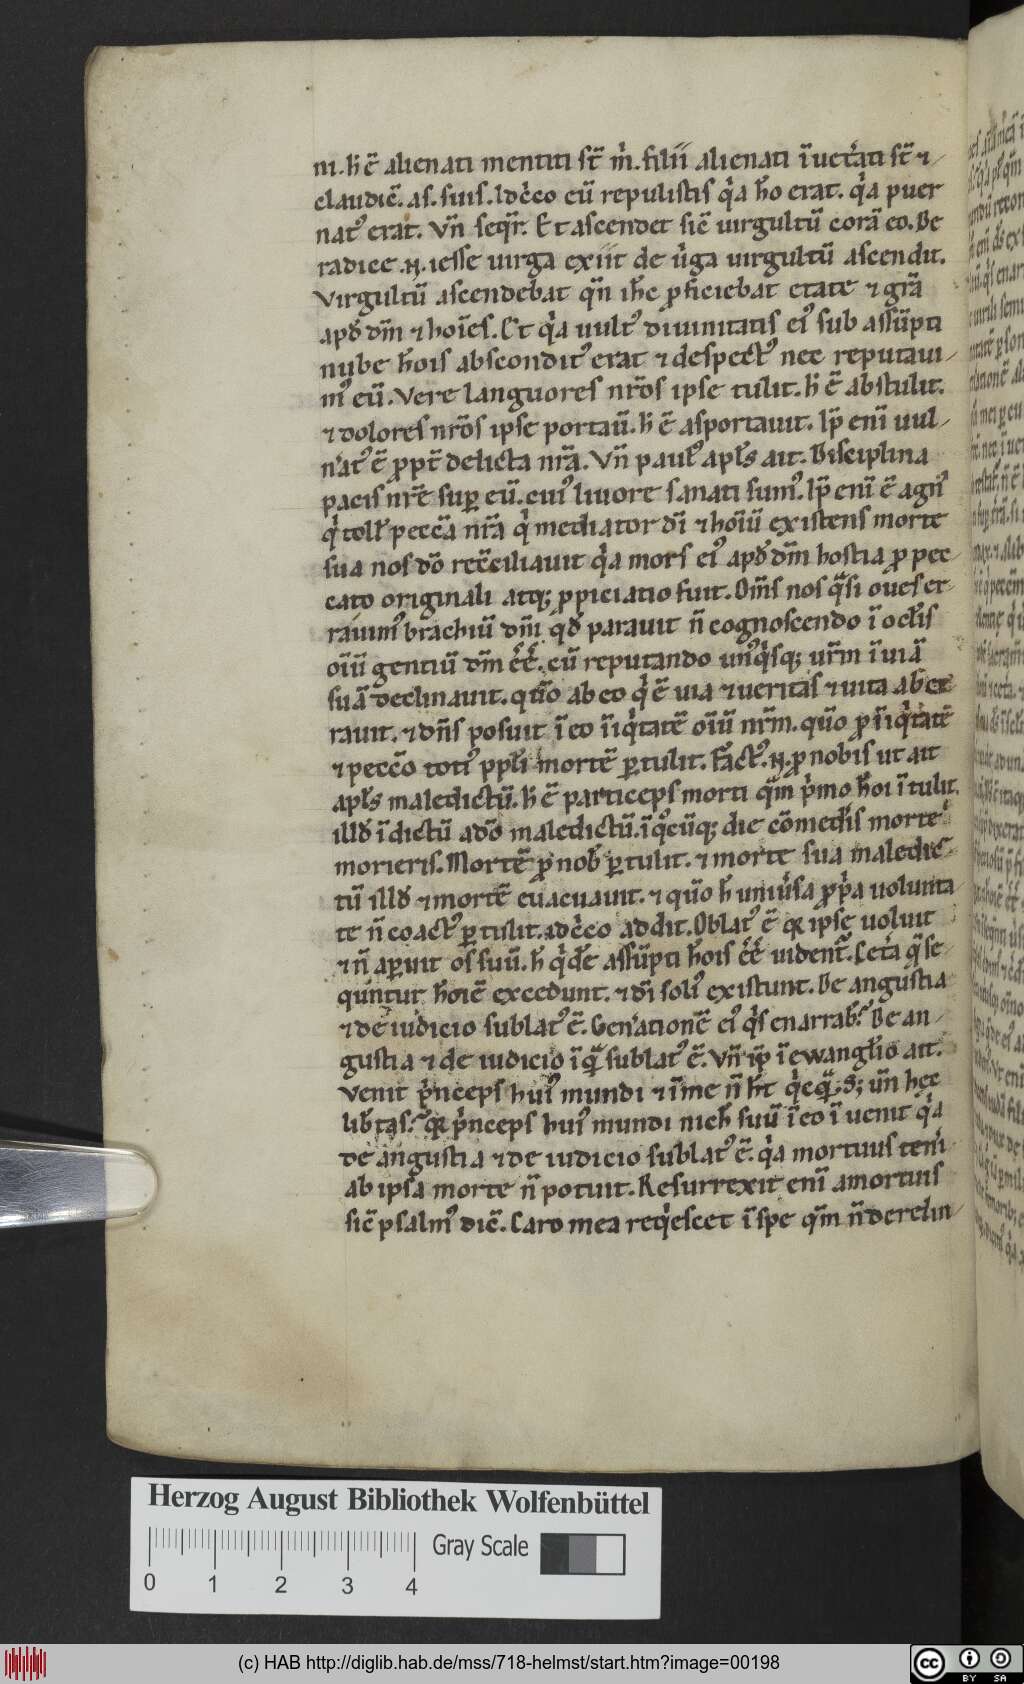 ni. h̄ ē alienati mentiti st̄ m̄. filii alienati īuet̄ati st̄ ⁊
claudic̄. as. suis. Idc̄co eū repulistis q̇a hō erat. q̇a puer
natꝰ erat. Vn̄ seqr̄. Et ascendet sic̄ uirgultū corā eo. De
radice .n. iesse uirga exiit de ūga uirgultū ascendit.
Virgultū ascendebat qn̄ ih̄c ꝓficiebat etate ⁊ grā
apď dm̄ ⁊ hoīes. Et q̇a uultꝰ diuinitatis eiꝰ sub assūpti
nube hōis absconditꝰ erat ⁊ despectꝰ nec reputaui
mꝰ eū. Vere languores nrōs ipse tulit. h̄ ē abstulit.
⁊ dolores nrōs ipse portaū. h̄ ē asportauit. Ip̄ enī uul
n̄atꝰ ē ꝓpt̄ delicta nrā. Vn̄ paulꝰ apl̄s ait. Disciplina
pacis nr̄e suꝑ eū. cuiꝰ liuore sanati sumꝰ. Ip̄ enī ē agnꝰ
q̇ toll̄ peccā nrā q̇ mediator dī ⁊ hoīū existens morte
sua nos dō recc̄iliauit q̇a mors eiꝰ apď dm̄ hostia ꝓ pec
cato originali atqꝫ ꝓpiciatio fuit. Om̄s nos qᷓsi oues er
rauimꝰ brachiū dm̄ qď parauit n̄ cognoscendo ī ocl̄is
oīū gentiū dm̄ ēē. eū reputando unꝰq̇sqꝫ ur̄m ī uiā
suā declinauit. quō ab eo q̇ ē uia ⁊ ueritas ⁊ uita aber
rauit. ⁊ dn̄s posuit ī eo īiq̇tatē oīū nr̄m. quō ꝓ īiq̇tatē
⁊ peccō totiꝰ ppl̄i mortē ꝑtulit. Factꝰ .n. ꝓ nobis ut ait
apl̄s maledictū. h̄ ē particeps morti qm̄ p̄mo hōi ītulit.
illď īdictū adō maledictū. īqᵒcūqꝫ die cōmedis mortē
morieris. Mortē ꝓ nob̄ ꝑtulit. ⁊ morte sua maledic
tū illď ⁊ mortē euacuauit. ⁊ quō h̄ uniūsa ꝓp̄a uolunta
te n̄ coactꝰ ꝑtulit. adc̄co addit. Oblatꝰ ē qꝛ ipse uoluit
⁊ n̄ aꝑuit os suū. h̄ q̇dē assūpti hōis ēē uident̄. Cet̄a q̄ se
quntur hōiē excedunt. ⁊ dī soliꝰ existunt. De angustia
⁊ de iudicio sublatꝰ ē. Gen̄ationē eiꝰ q̇s enarrab̄. De an
gustia ⁊ de iudicio īqᷓ sublatꝰ ē. Vn̄ ip̄ ī ewangl̄io ait.
Venit p̄nceps huiꝰ mundi ⁊ ī me n̄ ht̄ q̇cqᷓ. S; un̄ hec
lib̄tas. qꝛ p̄nceps huiꝰ mundi nich̄ suū ī eo īuenit q̇a
de angustia ⁊ de iudicio sublatꝰ ē. q̇a mortuus teni
ab ipsa morte n̄ potuit. Resurrexit enī amortuis
sic̄ psalmꝰ dic̄. Caro mea req̇escet ī spe qm̄ n̄ derelin
Herzog August Bibliothek Wolfenbüttel
Gray Scale
0 1 2 3 4
(c) HAB http://diglib.hab.de/mss/718-helmst/start.htm?image=00198
cc BY SA